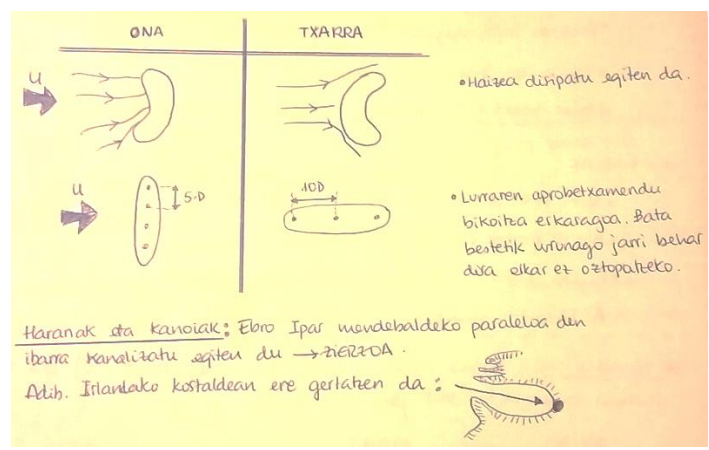 ONA
TXARRA
U
• Haizea disipatu egiten da.
U
5·D
10D
• Lurraren aprobetxamendu
bikoitza eskasagoa. Bata
bestetik urrunago jarri behar
dira elkar ez oztopatzeko.
Haranak eta kanoiak: Ebro Ipar mendebaldeko paraleloa den
ibarra kanalizatu egiten du → ZIERZOA.
Adib. Irlandako kostaldean ere gertatzen da: